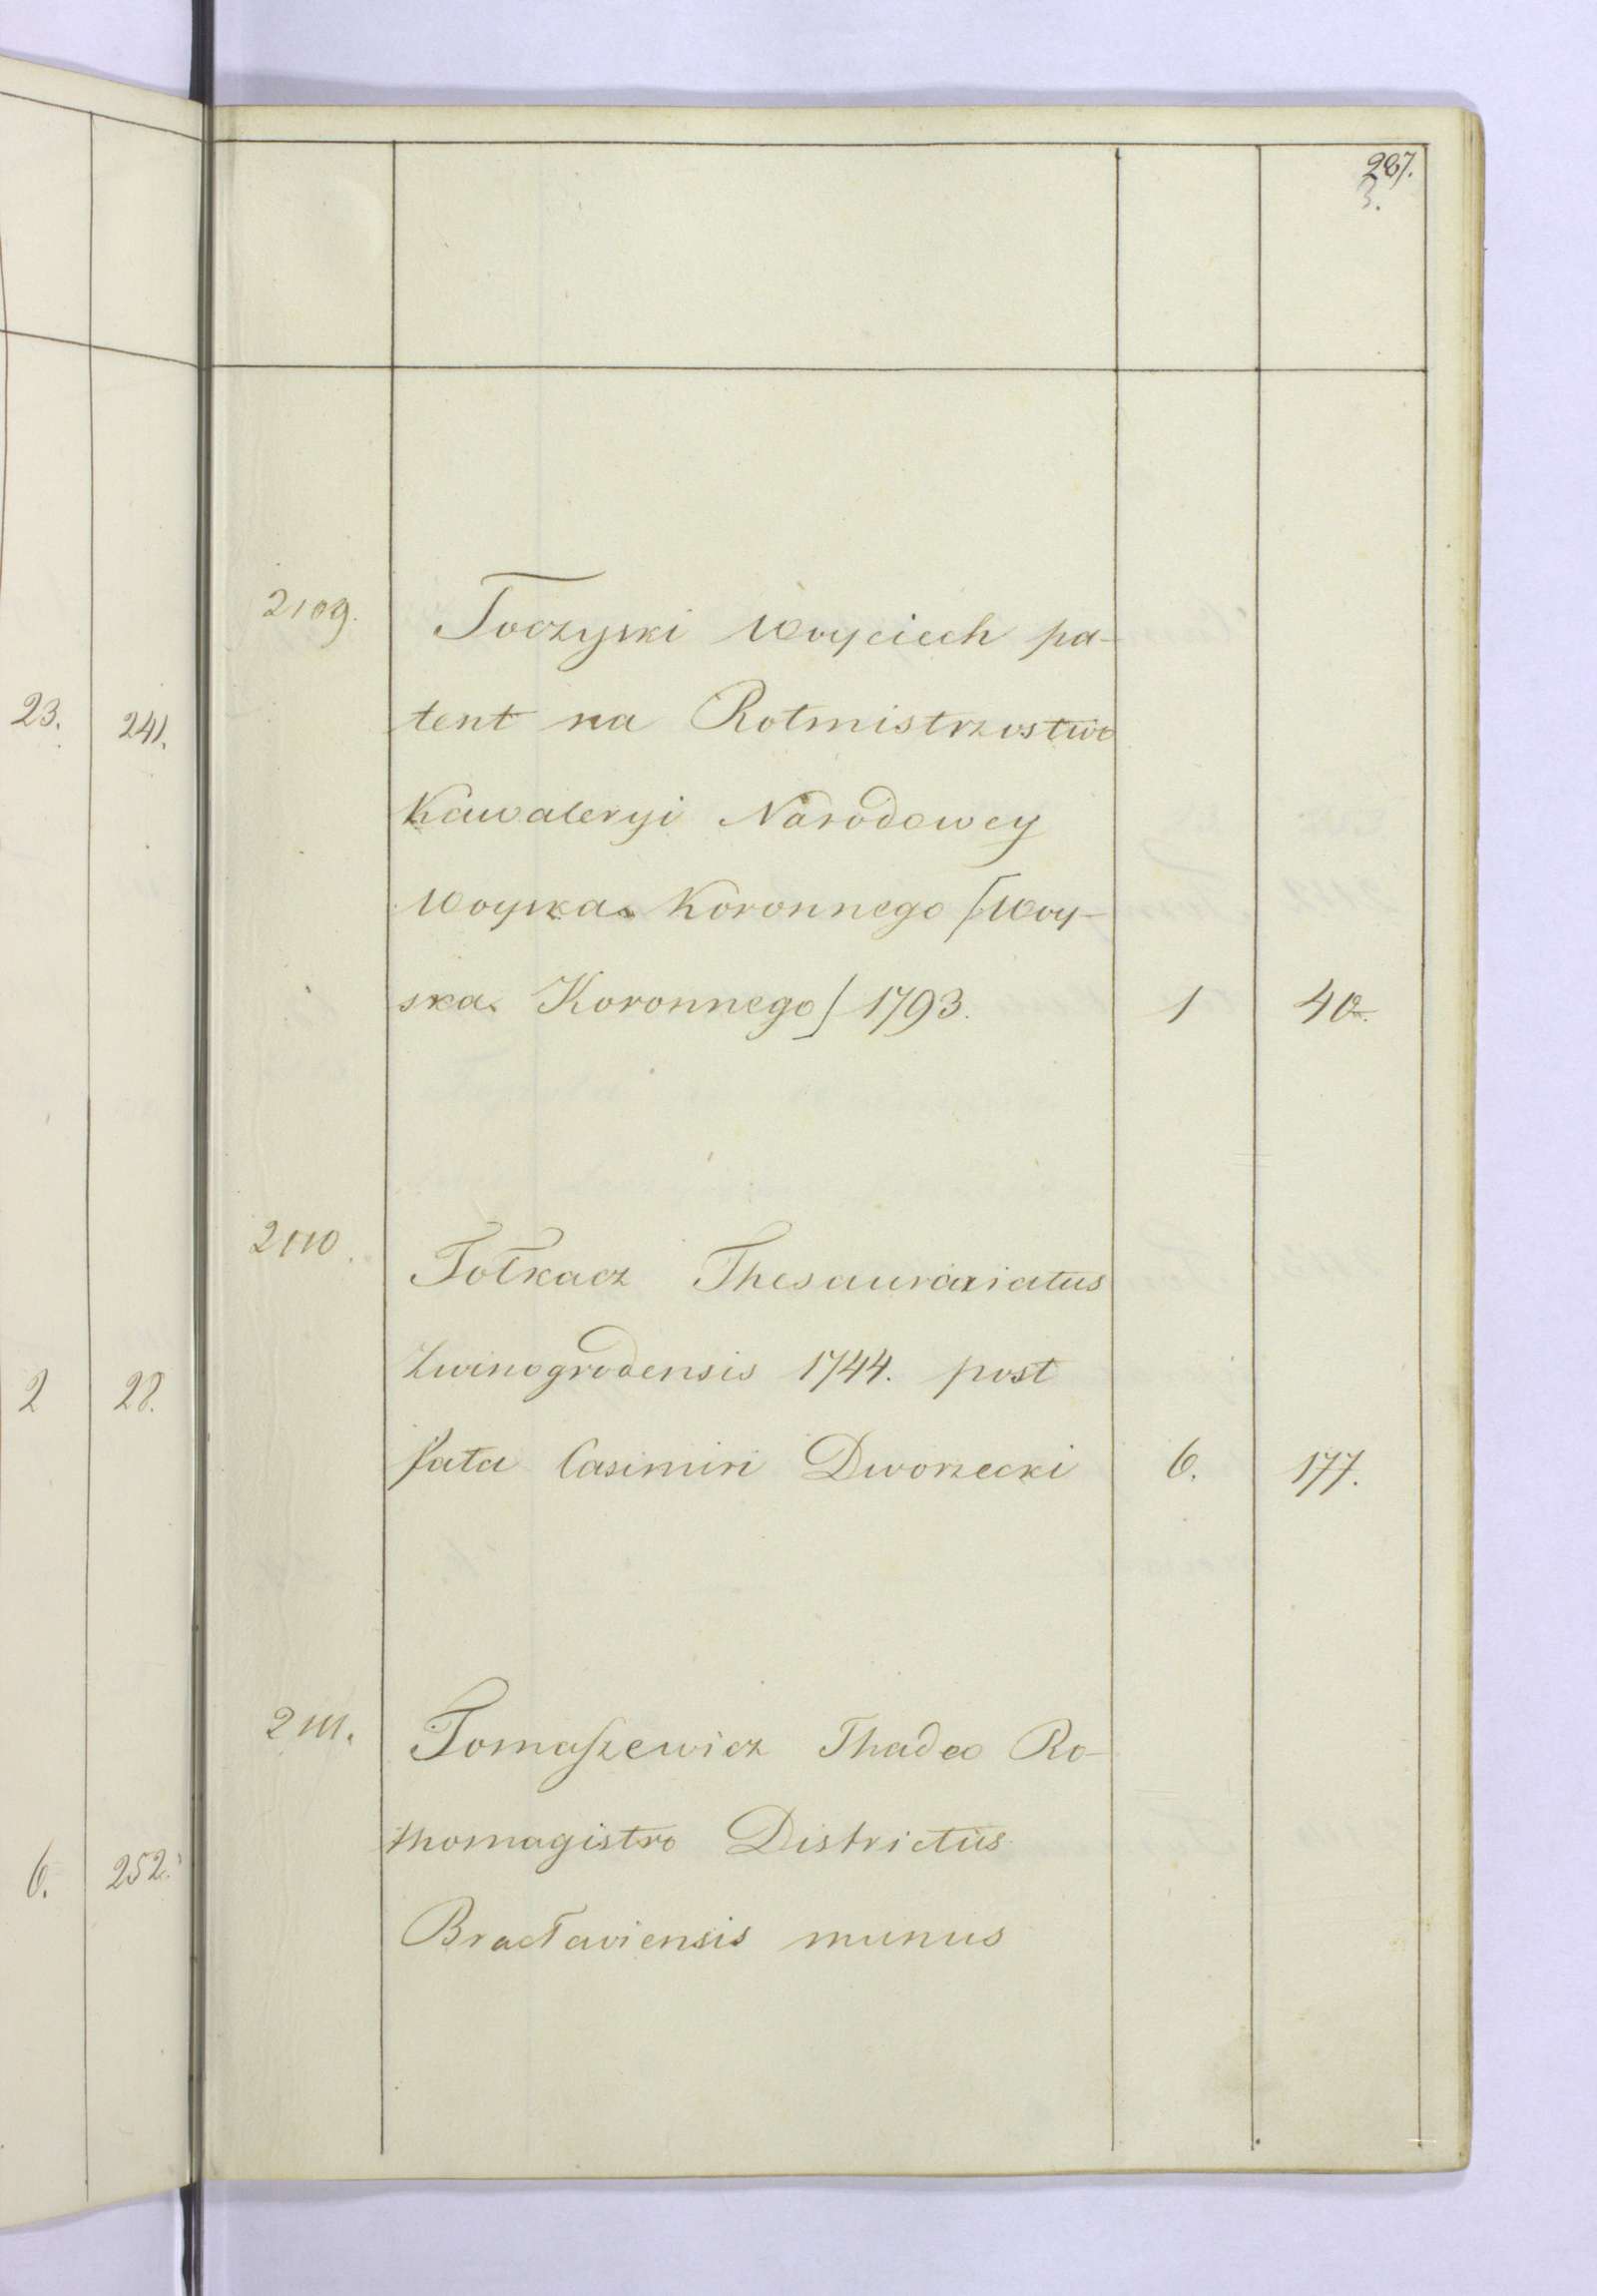 287.
3.
2109. Toczyski Woyciech pa-
tent na Rotmistrzostwo
Kawaleryi Narodowey
Woyska Koronnego [Woy-
ska Koronnego] 1793. 1 40.
2110. Tołkacz Thesaurariatus
Zwinogrodensis 1744. post
fata Casimiri Dworzecki 6. 177.
2111. Tomaszewicz Thadeo Ro-
thomagistro Districtus
Bracłaviensis munus
23. 241.
2 28.
6. 252.